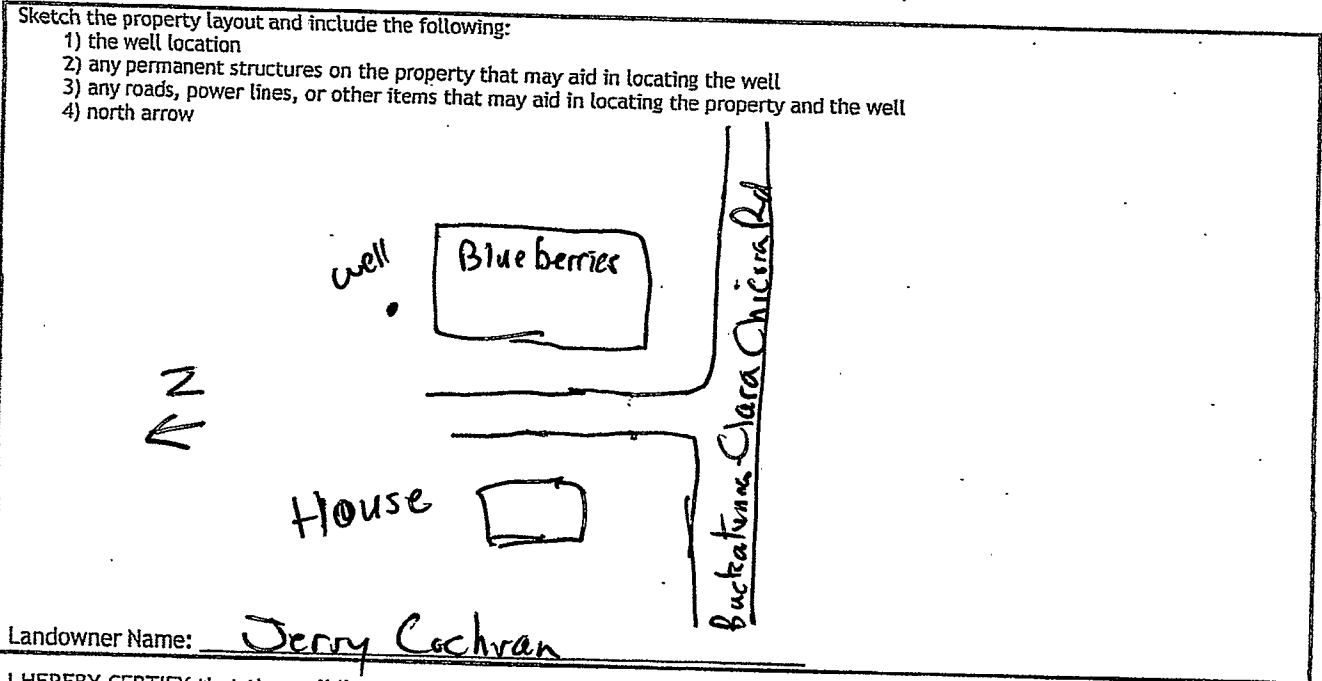 Sketch the property layout and include the following:
1) the well location
2) any permanent structures on the property that may aid in locating the well
3) any roads, power lines, or other items that may aid in locating the property and the well
4) north arrow
well
Blueberries
Buckatunna-Clara Chicora Rd
N
House
Landowner Name: Jerry Cochran
I HEREBY CERTIFY that the